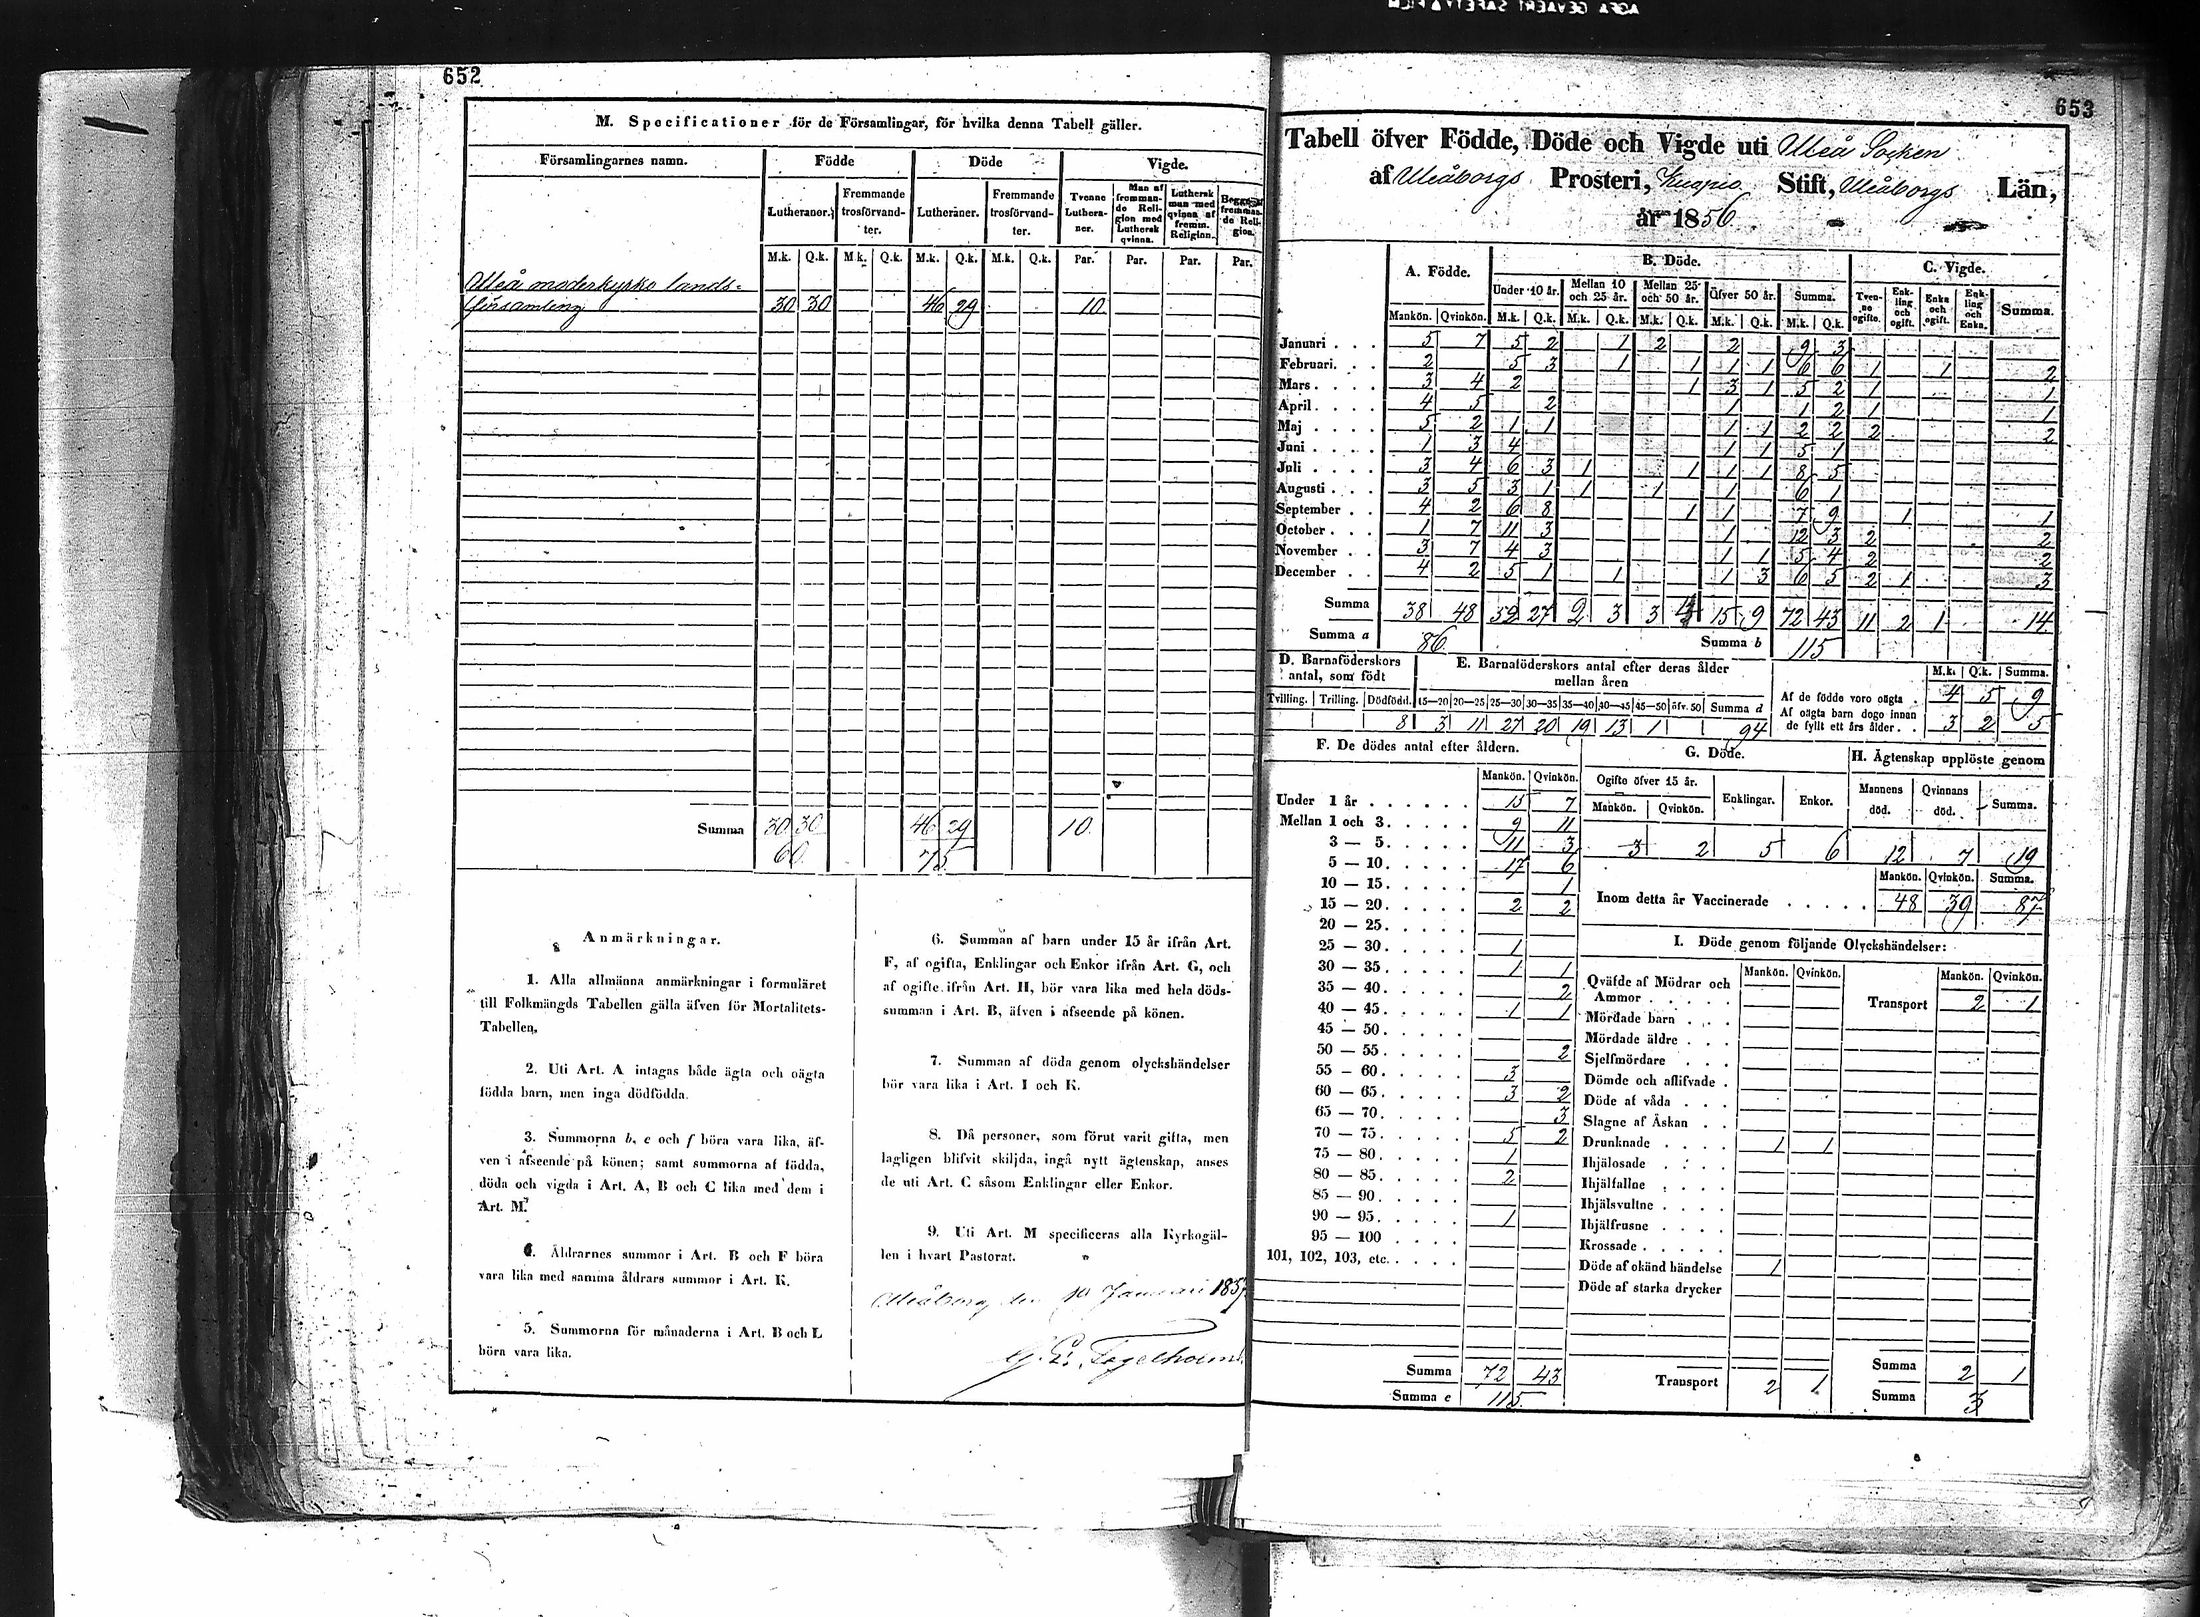 652
M. Specificationer för de Församlingar, för hvilka denna Tabell gäller.
Församlingarnes namn. Födde Döde Vigde.
Lutheraner. Fremmande trosförvandter. Lutheraner. Fremmande trosförvandter. Tvenne Lutheraner. Man af fremmande Religion med Luthersk qvinna. Luthersk man med qvinna af fremm. Religion. Begge af fremmande Religion.
M.k. Q.k. M.k. Q.k. M.k. Q.k. M.k. Q.k. Par. Par. Par. Par.
Uleå moderkyrko lands-
församling 30 30 46 29 10
Summa 30 30 46 29 10
60 75
Anmärkningar.
1. Alla allmänna anmärkningar i formuläret
till Folkmängds Tabellen gälla äfven för Mortalitets-
Tabellen.
2. Uti Art. A intagas både ägta och oägta
födda barn, men inga dödfödda.
3. Summorna b, e och f böra vara lika, äf-
ven i afseende på könen; samt summorna af födda,
döda och vigda i Art. A, B och C lika med dem i
Art. M.
4. Åldrarnes summor i Art. B och F böra
vara lika med samma åldrars summor i Art. K.
5. Summorna för månaderna i Art. B och L
böra vara lika.
6. Summan af barn under 15 år ifrån Art.
F, af ogifta, Enklingar och Enkor ifrån Art. G, och
af ogifte ifrån Art. H, bör vara lika med hela döds-
summan i Art. B, äfven i afseende på könen.
7. Summan af döda genom olyckshändelser
bör vara lika i Art. I och K.
8. Då personer, som förut varit gifta, men
lagligen blifvit skiljda, ingå nytt ägtenskap, anses
de uti Art. C såsom Enklingar eller Enkor.
9. Uti Art. M specificeras alla Kyrkogäl-
len i hvart Pastorat.
Uleåborg den Januari 1857
Fogelholm
653
Tabell öfver Födde, Döde och Vigde uti Uleå Socken
af Uleåborgs Prosteri, Kuopio Stift, Uleåborgs Län,
år 1856.
A. Födde. B. Döde. C. Vigde.
Under 10 år. Mellan 10 och 25 år. Mellan 25 och 50 år. Öfver 50 år. Summa. Tvenne ogifte. Enkling och ogift. Enka och ogift. Enkling och Enka. Summa.
Mankön. Qvinkön. M.k. Q.k. M.k. Q.k. M.k. Q.k. M.k. Q.k. M.k. Q.k.
Januari . . . 5 7 5 2 1 2 2 9 3
Februari. . . 2 5 3 1 1 1 1 6 6 1 1 2
Mars . . . . 3 4 2 1 3 1 5 2 1 1
April. . . . 4 5 2 1 1 2 1 1
Maj . . . . 5 2 1 1 1 1 2 2 2 2
Juni . . . . 1 3 4 1 1 5 1
Juli . . . . 3 4 6 3 1 1 1 1 8 5
Augusti . . . 3 5 3 1 1 1 1 6 1
September . . 4 2 6 8 1 1 7 9 1 1
October . . . 1 7 11 3 1 12 3 2 2
November . . 3 7 4 3 1 1 5 4 2 2
December . . 4 2 5 1 1 1 3 6 5 2 1 3
Summa 38 48 52 27 2 3 3 4 15 9 72 43 11 2 1 14
Summa a 86 Summa b 115
D. Barnaföderskors antal, som födt
E. Barnaföderskors antal efter deras ålder mellan åren
M.k. Q.k. Summa.
Tvilling. Trilling. Dödfödd. 15—20 20—25 25—30 30—35 35—40 40—45 45—50 öfv. 50 Summa d
8 3 11 27 20 19 13 1 94
Af de födde voro oägta . 4 5 9
Af oägta barn dogo innan de fyllt ett års ålder . . 3 2 5
F. De dödes antal efter åldern.
Mankön. Qvinkön.
Under 1 år . . . . . . 15 7
Mellan 1 och 3. . . . . 9 11
3 — 5. . . . . 11 3
5 — 10. . . . . 17 6
10 — 15. . . . . 1
15 — 20. . . . . 2 2
20 — 25. . . . .
25 — 30. . . . . 1
30 — 35. . . . . 1 1
35 — 40. . . . . 2
40 — 45. . . . . 1 1
45 — 50. . . . .
50 — 55. . . . . 2
55 — 60. . . . . 3
60 — 65. . . . . 3 2
65 — 70. . . . . 3
70 — 75. . . . . 5 2
75 — 80. . . . . 1
80 — 85. . . . . 2
85 — 90. . . . .
90 — 95. . . . . 1
95 — 100 . . . .
101, 102, 103, etc. . . . .
Summa 72 43
Summa e 115
G. Döde.
Ogifte öfver 15 år. Enklingar. Enkor.
Mankön. Qvinkön.
3 2 5 6
H. Ägtenskap upplöste genom
Mannens död. Qvinnans död. Summa.
12 7 19
Mankön. Qvinkön. Summa.
Inom detta år Vaccinerade . . . . . 48 39 87
I. Döde genom följande Olyckshändelser:
Mankön. Qvinkön. Mankön. Qvinkön.
Qväfde af Mödrar och Ammor . . . . .
Transport 2 1
Mördade barn . . .
Mördade äldre . . .
Sjelfmördare . . .
Dömde och aflifvade .
Döde af våda . . .
Slagne af Åskan . .
Drunknade . . . . 1 1
Ihjälosade . . . .
Ihjälfallne . . . .
Ihjälsvultne . . . .
Ihjälfrusne . . . .
Krossade . . . . .
Döde af okänd händelse 1
Döde af starka drycker
Transport 2 1
Summa 2 1
Summa 3